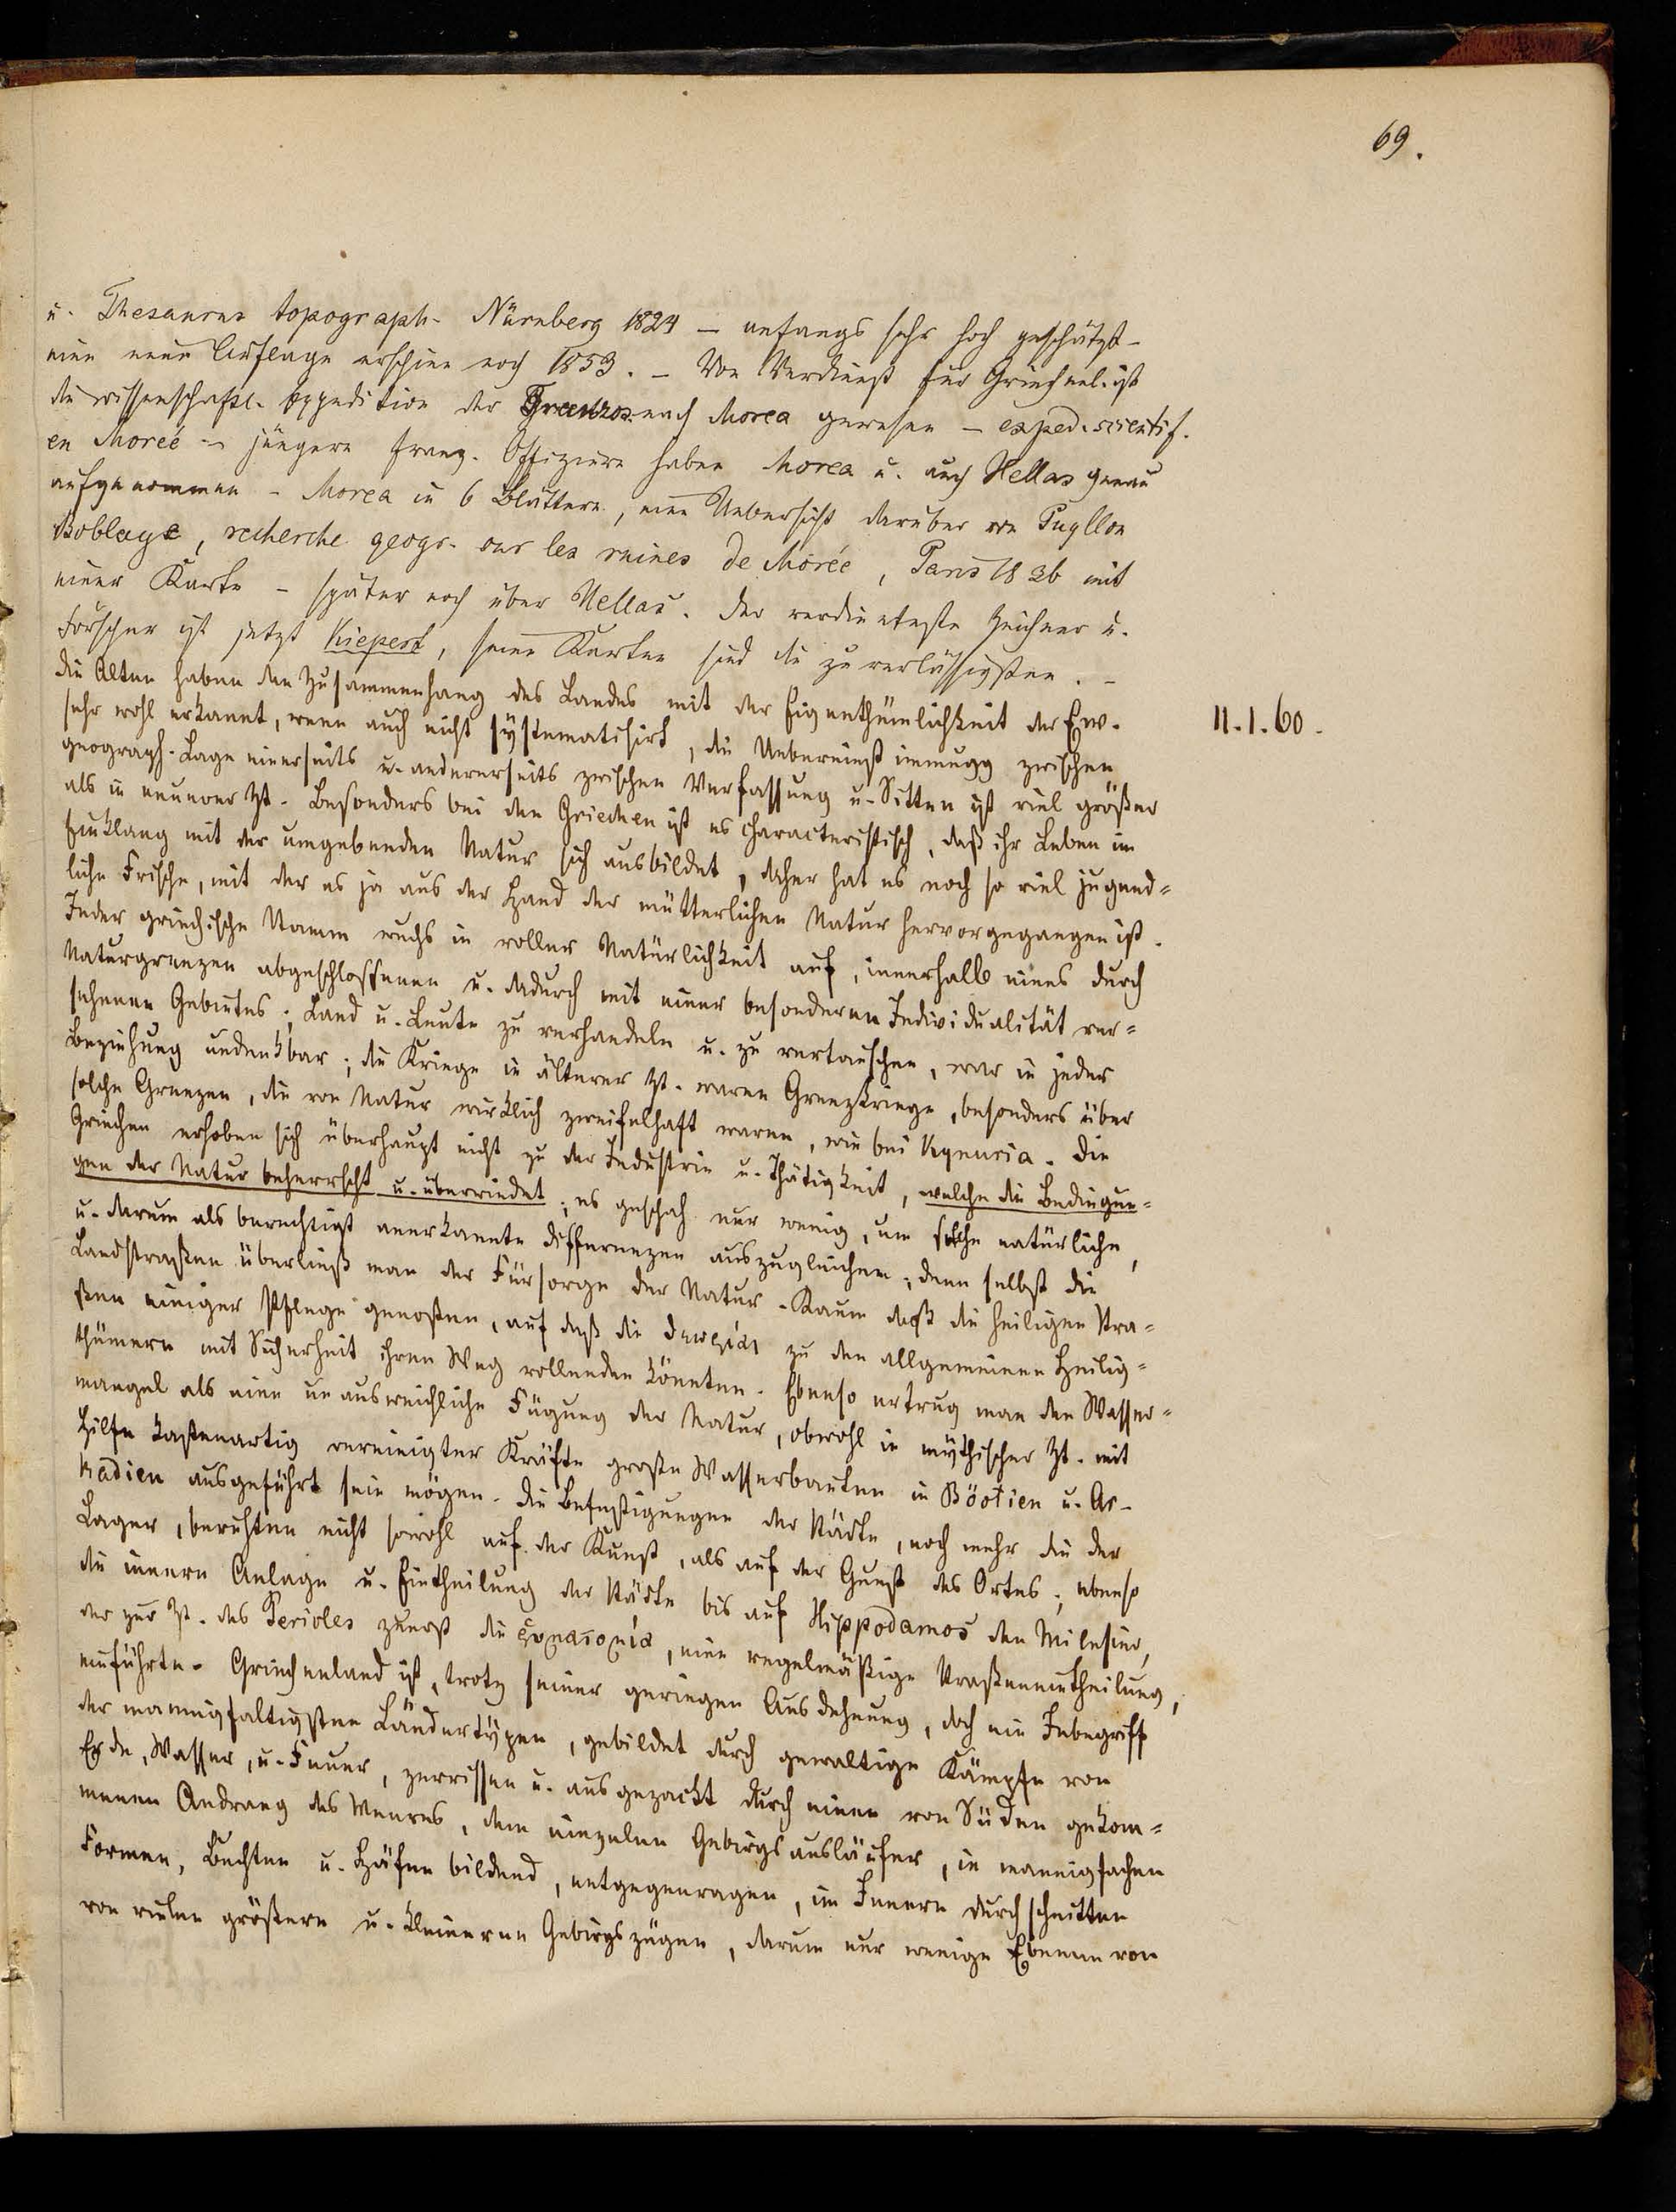 69.
u. Thesaurus topograph. Nürnberg 1824 — anfangs sehr hoch geschätzt –
eine neue Auflage erschien noch 1853. – Von Verdienst für Griechenl. ist
die wissenschaftl. Expedition der Franzos. nach Morea gewesen – exped. scientif.
en Moreé – jüngere franz. Offiziere haben Morea u. auch Hellas genau
aufgenommen – Morea in 6 Blättern, eine Uebersicht darüber von Puyllon
Boblaye, recherche geogr. sur les ruines de Morée, Paris 1836 mit
einer Karte – später noch über Hellas. Der verdienteste Zeichner u.
Forscher ist jetzt Kiepert, seine Karten sind die zuverlässigsten. –
Die Alten haben den Zusammenhang des Landes mit der Eigenthümlichkeit der Ew.
sehr wohl erkannt, wenn auch nicht systematisirt, die Uebereinstimmugg zwischen
geograph. Lage einerseits u. andererseits zwischen Verfassung u. Sitten ist viel größer
als in neuerer Zt. Besonders bei den Griechen ist es characteristisch, daß ihr Leben im
Einklang mit der umgebenden Natur sich ausbildet, daher hat es noch so viel jugend=
liche Frische, mit der es ja aus der Hand der mütterlichen Natur hervorgegangen ist.
Jeder griechische Stamm wuchs in voller Natürlichkeit auf, innerhalb eines durch
Naturgrenzen abgeschlossenen u. dadurch mit einer besonderen Individualität ver=
sehenen Gebietes; Land u. Leute zu verhandeln u. zu vertauschen, war in jeder
Beziehung undenkbar; die Kriege in älterer Zt. waren Grenzkriege, besonders über
solche Grenzen, die von Natur wirklich zweifelhaft waren, wie bei Kynuria. Die
Griechen erhoben sich überhaupt nicht zu der Industrie u. Thätigkeit, welche die Bedingun=
gen der Natur beherrscht u. überwindet; es geschah nur wenig, um solche natürliche,
u. darum als berechtigt anerkannte Differenzen auszugleichen; denn selbst die
Landstraßen überließ man der Fürsorge der Natur. Kaum daß die heiligen Stra=
ßen einiger Pflege genoßen, auf daß die θεωρίαι zu den allgemeinen Heilig=
thümern mit Sicherheit ihren Weg vollenden könnten. Ebenso ertrug man den Wasser=
mangel als eine unausweichliche Fügung der Natur, obwohl in mythischer Zt. mit
Hilfe kastenartig vereinigter Kräfte große Wasserbauten in Böotien u. Ar-
kadien ausgeführt sein mögen. Die Befestigungen der Städte, noch mehr die der
Lager, beruhten nicht sowohl auf der Kunst, als auf der Gunst des Ortes; ebenso
die innere Anlage u. Eintheilung der Städte bis auf Hippodamos den Milesier,
der zur Zt. des Pericles zuerst die, eine regelmäßige Straßeneintheilung,
einführte. Griechenland ist, trotz seiner geringen Ausdehnung, doch ein Inbegriff
der mannigfaltigsten Ländertypen, gebildet durch gewaltige Kämpfe von
Erde, Wasser, u. Feuer, zerrissen u. ausgezackt durch einen von Süden gekom=
menen Andrang des Meeres, dem einzelne Gebirgsausläufer, in mannigfachen
Formen, Buchten u. Häfen bildend, entgegenragen, im Innern durchschnitten
von vielen größern u. kleineren Gebirgszügen, darum nur wenige Ebenen von
11.1.60.